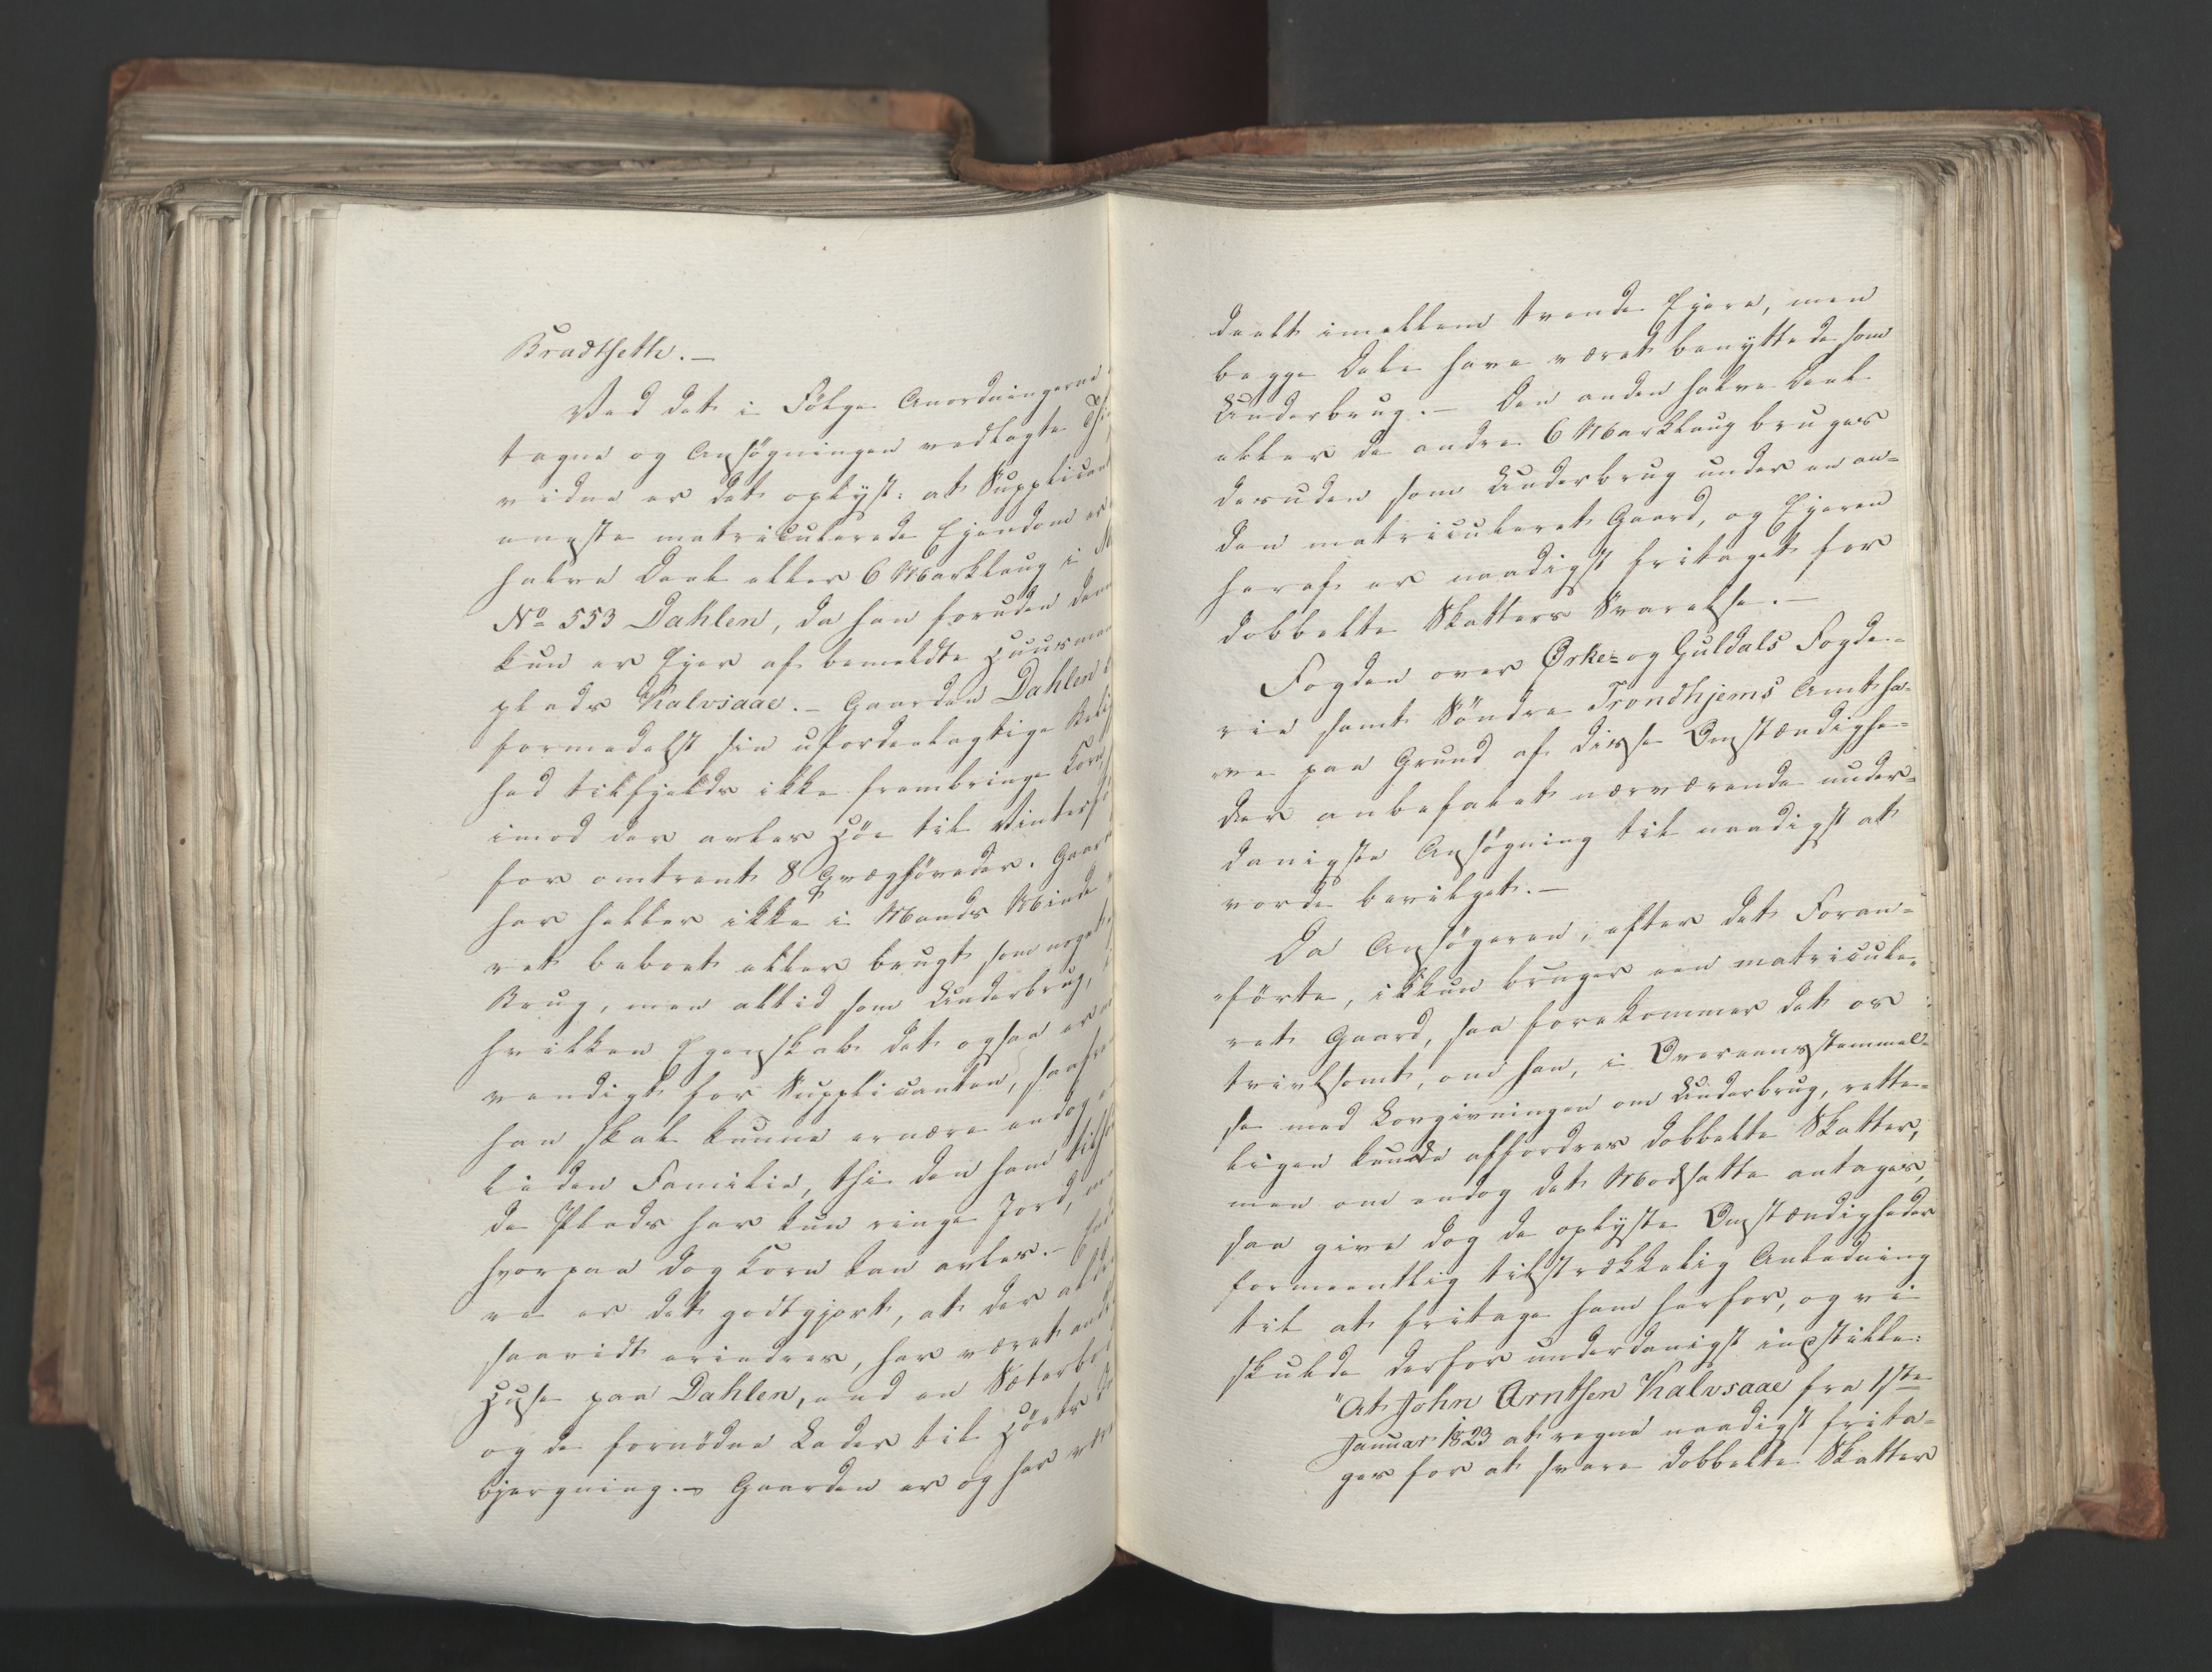 Bradtseth. —
Ved det i Følge Anordningerne
tagne og Ansøgningen vedlagte
vidne er det oplyst: at Supplicant
eneste matriculerede Ejendom er
halve Deel eller 6 Marklaug i
No 553 Dahlen, da han foruden
kun er Ejer af bemeldte Huusmand
plads Kalvsaae. — Gaarden Dahlen
formedelst sin ufordeelagtige
hed tilfjelds ikke frembringe Korn,
imod der avles Høe til Vinter
for omtrent 8 Qvæghøveder.
har heller ikke i Mands Minde
ret beboet eller brugt som noget
Brug, men altid som Underbrug,
hvilken Egenskab det ogsaa er
vendigt for Supplicanten, saa
han skal kunne ernære endog
liden Familie, thi den ham
de Plads har kun ringe Jord,
hvorpaa dog Korn kan avles. —
re er det godtgjort, at der
saavidt erindres, har været
Huse paa Dahlen, end en
og de fornødne Lader til Høets
bjergning. — Gaarden er og har
deelt imellem tvende Ejere, men
begge Dele have været benyttede som
Underbrug. — Den anden halve Deel
eller de andre 6 Marklaug bruges
desuden som Underbrug under en an-
den matriculeret Gaard, og Ejeren
heraf er naadigst fritaget for
dobbelte Skatters Svarelse. —
Fogden over Ørke- og Guldals Fogde-
rie samt Søndre Trondhjems Amt ha-
ve paa Grund af disse Omstændighe-
der anbefalet nærværende under-
danigste Ansøgning til naadigst at
vorde bevilget. —
Da Ansøgeren, efter det Foran-
førte, ikkun bruger een matricule-
ret Gaard, saa forekommer det os
tvivlsomt, om han, i Overeensstemmel-
se med Lovgivningen om Underbrug, rette-
ligen kunde affordres dobbelte Skatter,
men om endog det Modsatte antages,
saa give dog de oplyste Omstændigheder
formeentlig tilstrækkelig Anledning
til at fritage ham herfor, og vi
skulde derfor underdanigst indstille:
"At John Arntsen Kalvsaae fra 1ste
Januar 1823 at regne naadigst frita-
ges for at svare dobbelte Skatter